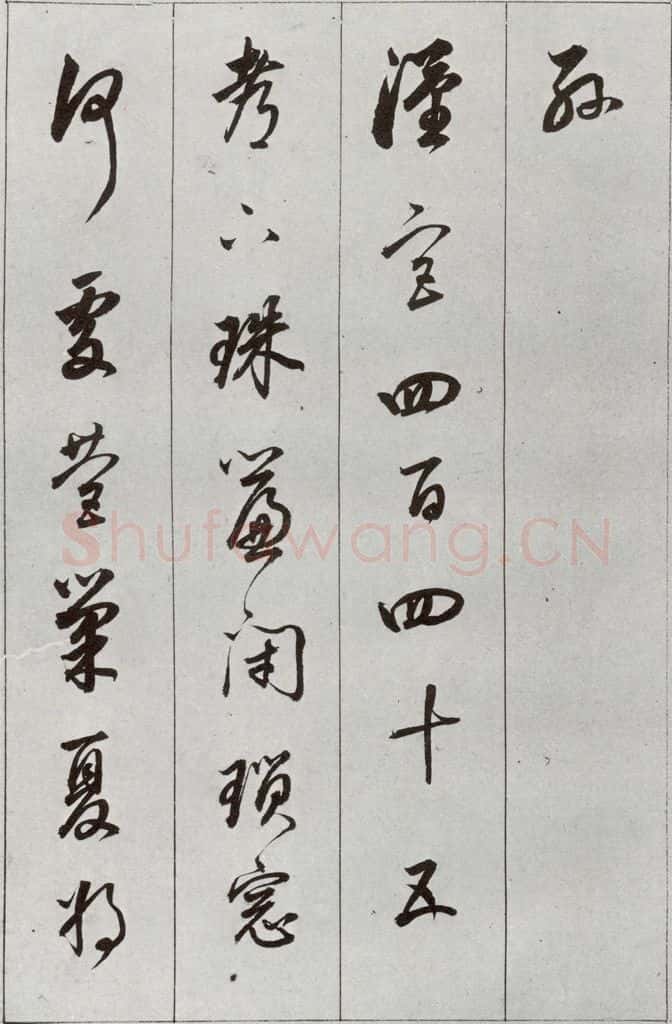 漢宮四百四十五
下珠簾閉瑣窓
何處營巢夏將
Shufawang.CN